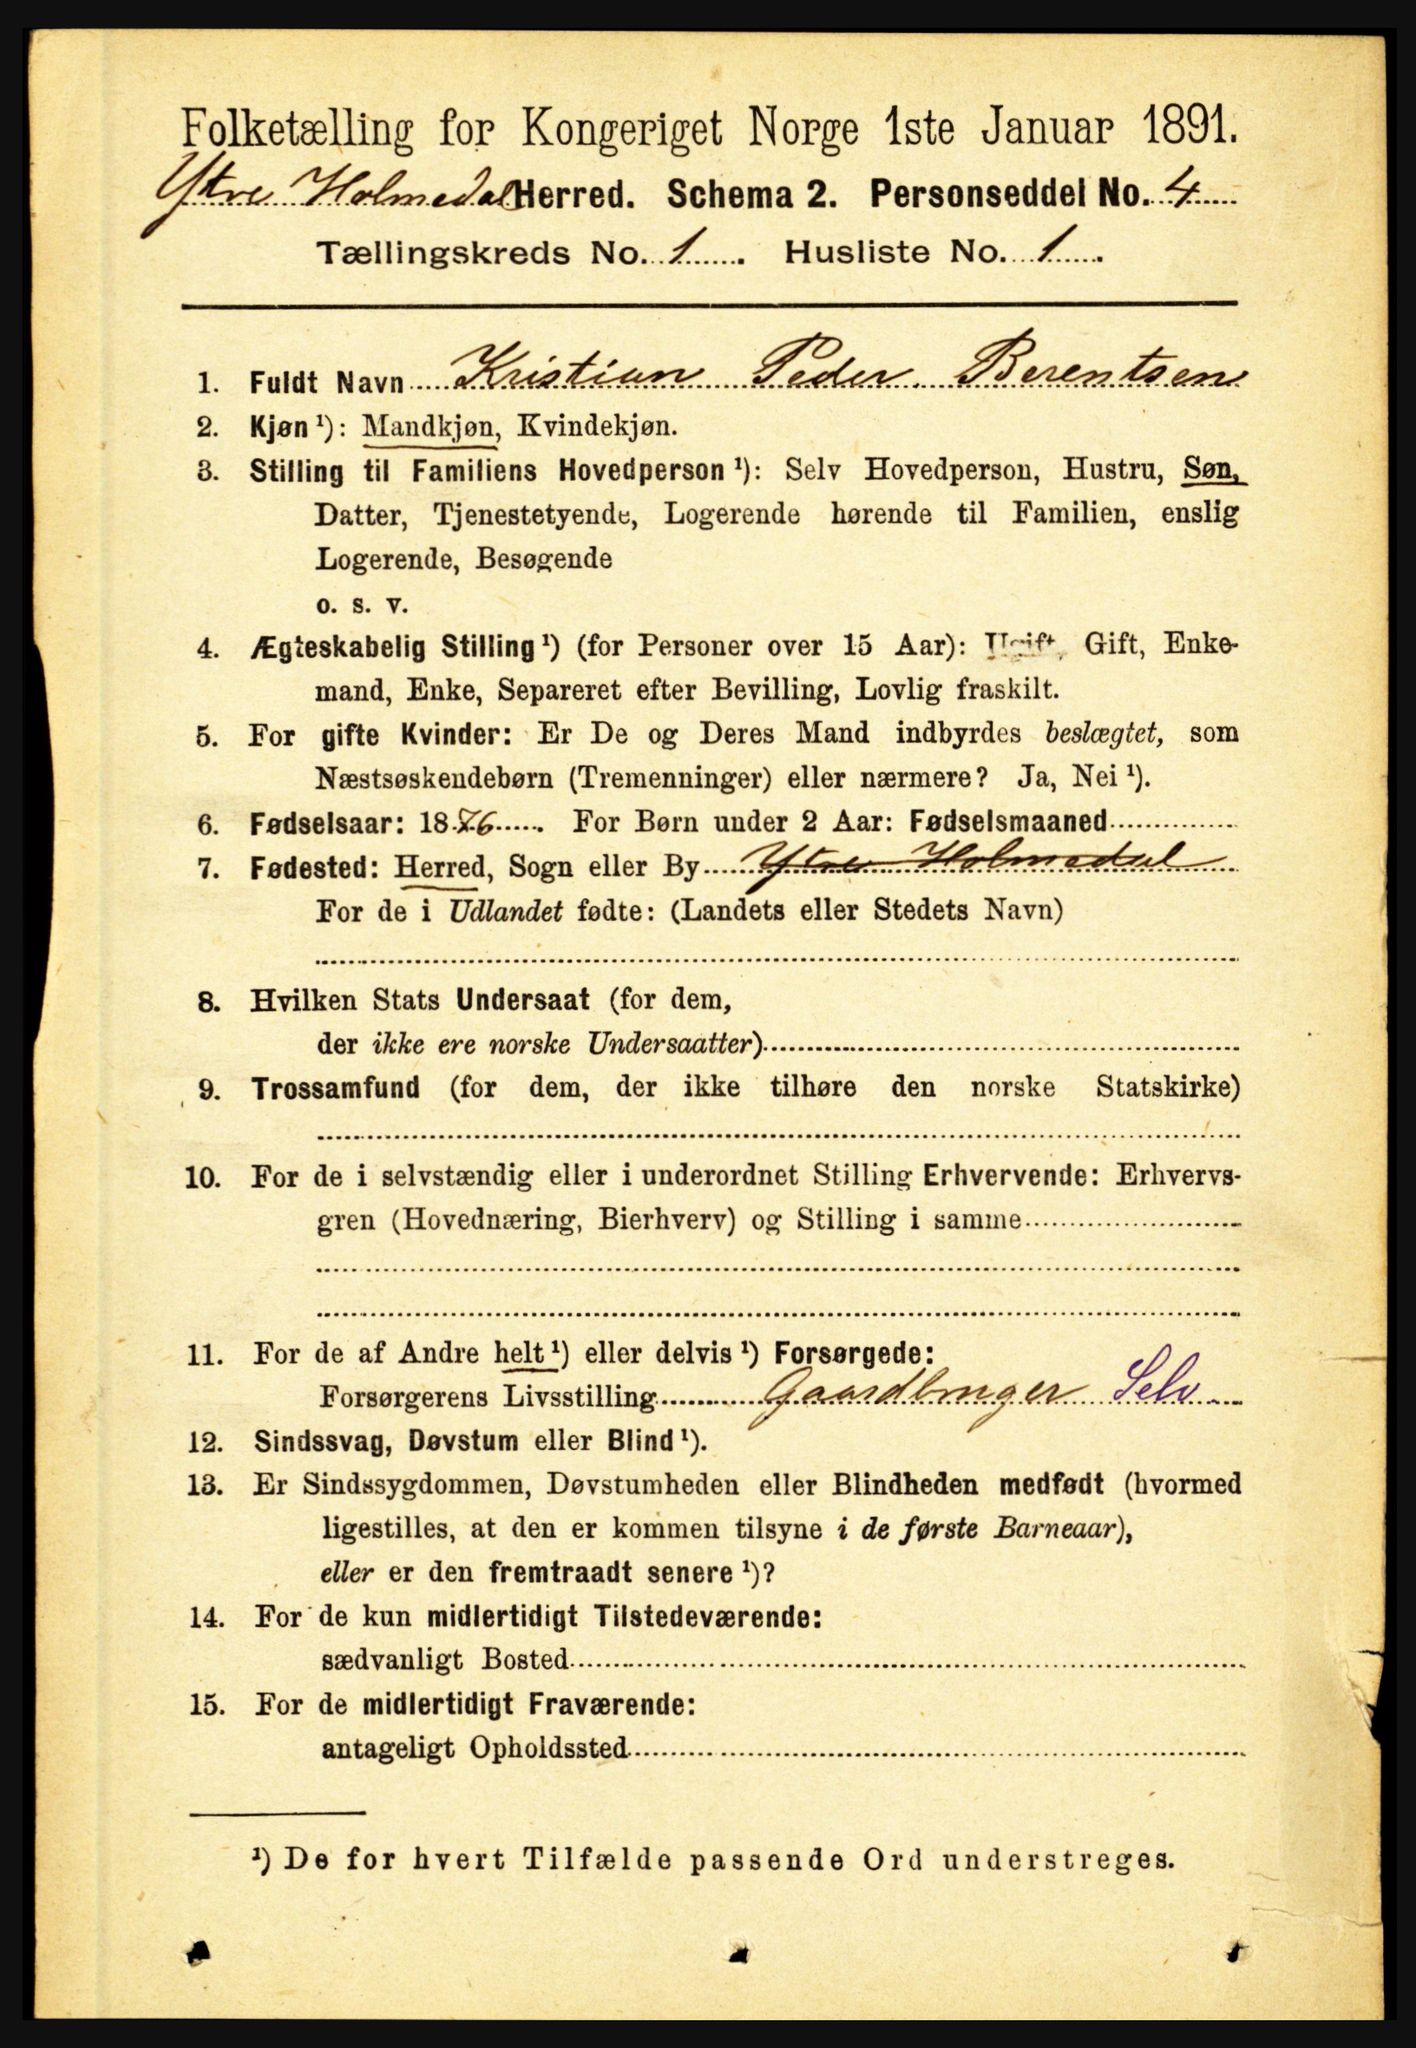 Folketælling for Kongeriget Norge 1ste Januar 1891.
Ytre Holmedal Herred. Schema 2. Personseddel No. 4
Tællingskreds No. 1. Husliste No. 1.
1. Fuldt Navn Kristian Peder Berentsen
2. Kjøn ¹): Mandkjøn, Kvindekjøn.
3. Stilling til Familiens Hovedperson ¹): Selv Hovedperson, Hustru, Søn,
Datter, Tjenestetyende, Logerende hørende til Familien, enslig
Logerende, Besøgende
o. s. v.
4. Ægteskabelig Stilling ¹) (for Personer over 15 Aar): Ugift, Gift, Enke-
mand, Enke, Separeret efter Bevilling, Lovlig fraskilt.
5. For gifte Kvinder: Er De og Deres Mand indbyrdes beslægtet, som
Næstsøskendebørn (Tremenninger) eller nærmere? Ja, Nei ¹).
6. Fødselsaar: 1876. For Børn under 2 Aar: Fødselsmaaned
7. Fødested: Herred, Sogn eller By Ytre Holmedal
For de i Udlandet fødte: (Landets eller Stedets Navn)
8. Hvilken Stats Undersaat (for dem,
der ikke ere norske Undersaatter)
9. Trossamfund (for dem, der ikke tilhøre den norske Statskirke)
10. For de i selvstændig eller i underordnet Stilling Erhvervende: Erhvervs-
gren (Hovednæring, Bierhverv) og Stilling i samme
11. For de af Andre helt ¹) eller delvis ¹) Forsørgede:
Forsørgerens Livsstilling Gaardbruger Selv
12. Sindssvag, Døvstum eller Blind ¹).
13. Er Sindssygdommen, Døvstumheden eller Blindheden medfødt (hvormed
ligestilles, at den er kommen tilsyne i de første Barneaar),
eller er den fremtraadt senere ¹)?
14. For de kun midlertidigt Tilstedeværende:
sædvanligt Bosted
15. For de midlertidigt Fraværende:
antageligt Opholdssted
¹) De for hvert Tilfælde passende Ord understreges.